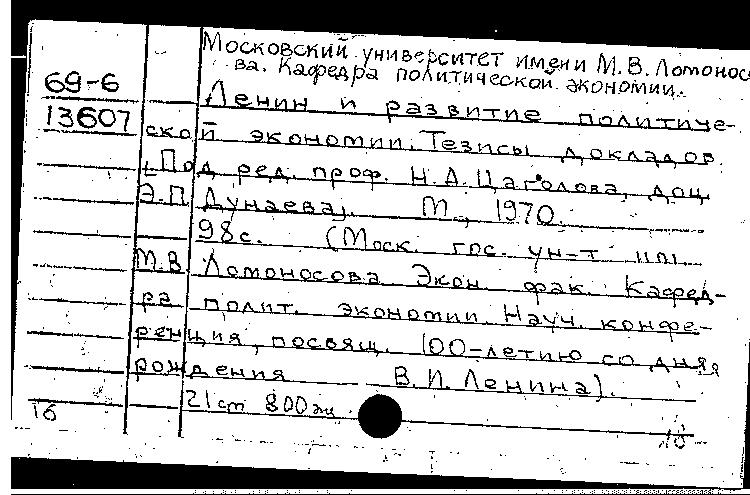 Московский университет имени М.В. Ломоносо-
ва. Кафедра политической экономии.
69-6
Ленин и развитие политиче-
13607
ской экономии. Тезисы докладов.
[Под ред. проф. Н.А. Цаголова, доц.
Э.П. Дунаева]. М., 1970.
98с. (Моск. гос. ун-т им.
М.В. Ломоносова Экон. фак. Кафед-
ра полит. экономии. Науч. конфе-
ренция, посвящ. 100-летию со дня
рождения В.И. Ленина).
21см 800экз
16